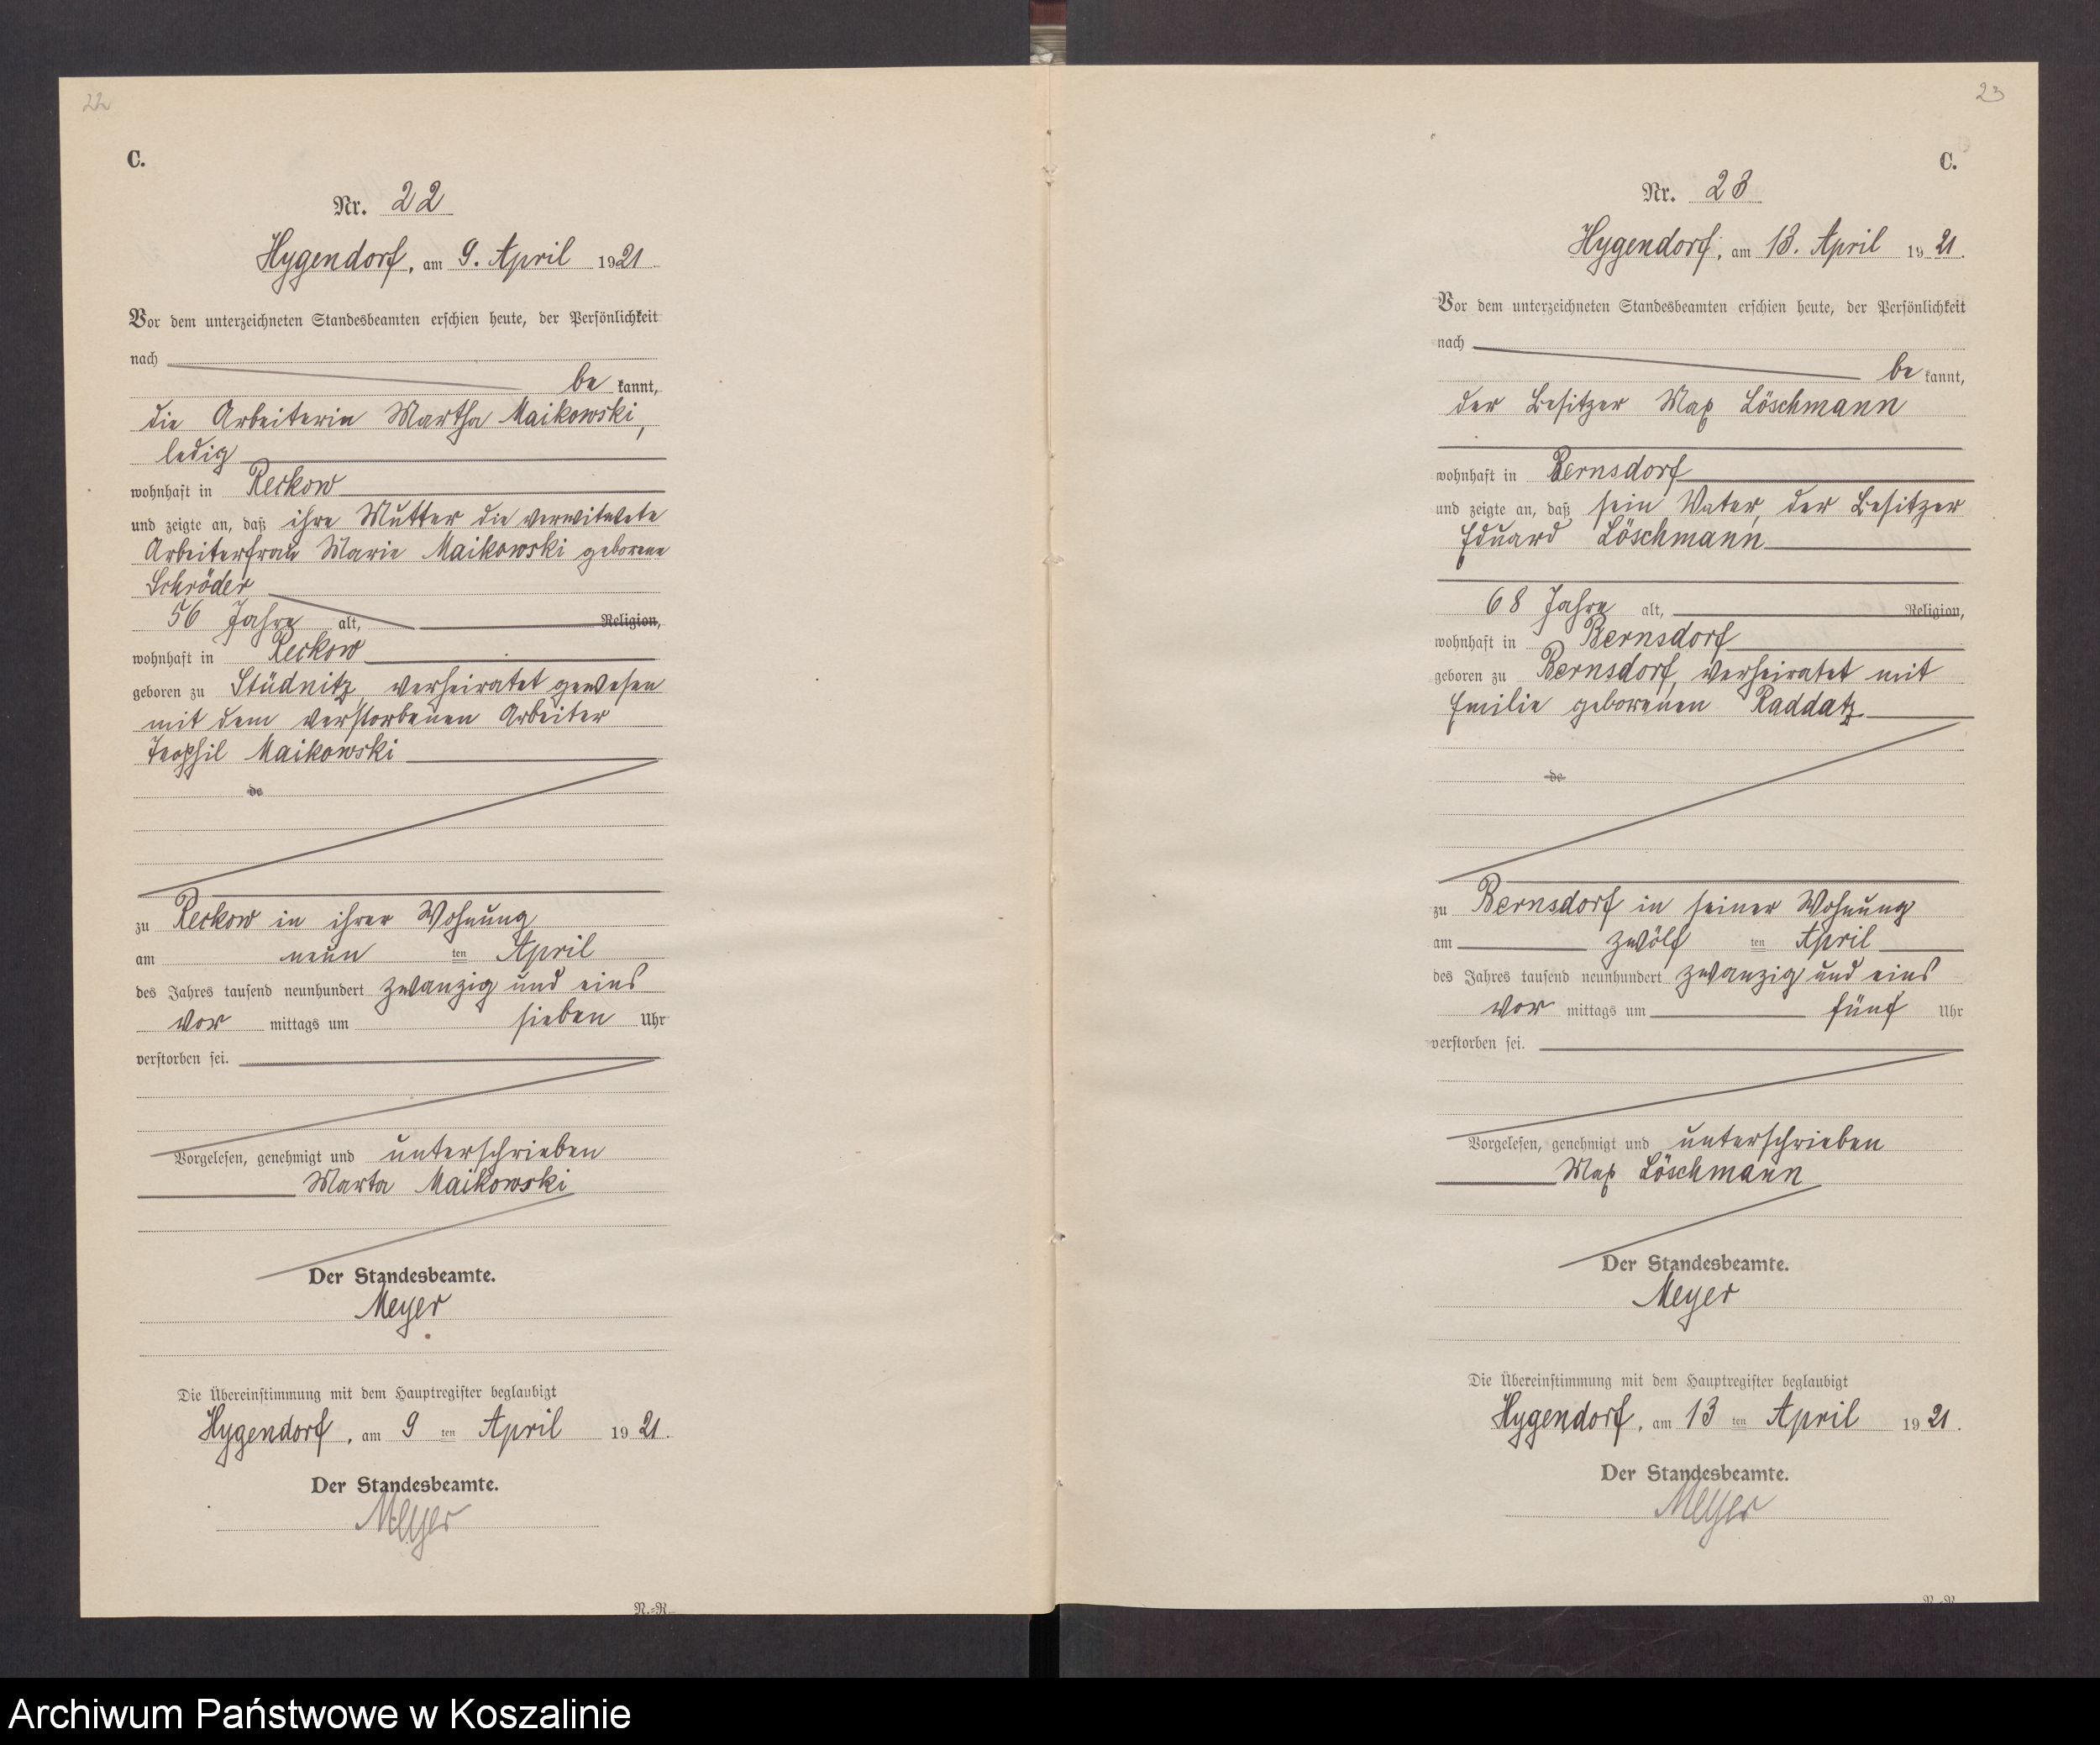 22
C.
Nr. 22
Hygendorf, am 9. April 1921
Vor dem unterzeichneten Standesbeamten erschien heute, der Persönlichkeit
nach
be kannt,
die Arbeiterin Martha Maikowski,
ledig
wohnhaft in Reckow
und zeigte an, daß ihre Mutter die verwitwete
Arbeiterfrau Marie Maikowski geborene
Schröder
56 Jahre alt, Religion,
wohnhaft in Reckow
geboren zu Stüdnitz, verheiratet gewesen
mit dem verstorbenen Arbeiter
Teophil Maikowski
de
zu Reckow in ihrer Wohnung
am neun ten April
des Jahres tausend neunhundert zwanzig und eins
vor mittags um sieben Uhr
verstorben sei.
Vorgelesen, genehmigt und unterschrieben
Marta Maikowski
Der Standesbeamte.
Meyer
Die Übereinstimmung mit dem Hauptregister beglaubigt
Hygendorf, am 9 ten April 1921.
Der Standesbeamte.
Meyer
N.-R.
23
C.
Nr. 23
Hygendorf, am 13. April 1921.
Vor dem unterzeichneten Standesbeamten erschien heute, der Persönlichkeit
nach
be kannt,
der Besitzer Max Löschmann
wohnhaft in Bernsdorf
und zeigte an, daß sein Vater, der Besitzer
Eduard Löschmann
68 Jahre alt, Religion,
wohnhaft in Bernsdorf
geboren zu Bernsdorf, verheiratet mit
Emilie geborenen Raddatz
de
zu Bernsdorf in seiner Wohnung
am zwölf ten April
des Jahres tausend neunhundert zwanzig und eins
vor mittags um fünf Uhr
verstorben sei.
Vorgelesen, genehmigt und unterschrieben
Max Löschmann
Der Standesbeamte.
Meyer
Die Übereinstimmung mit dem Hauptregister beglaubigt
Hygendorf, am 13 ten April 1921.
Der Standesbeamte.
Meyer
Archiwum Państwowe w Koszalinie